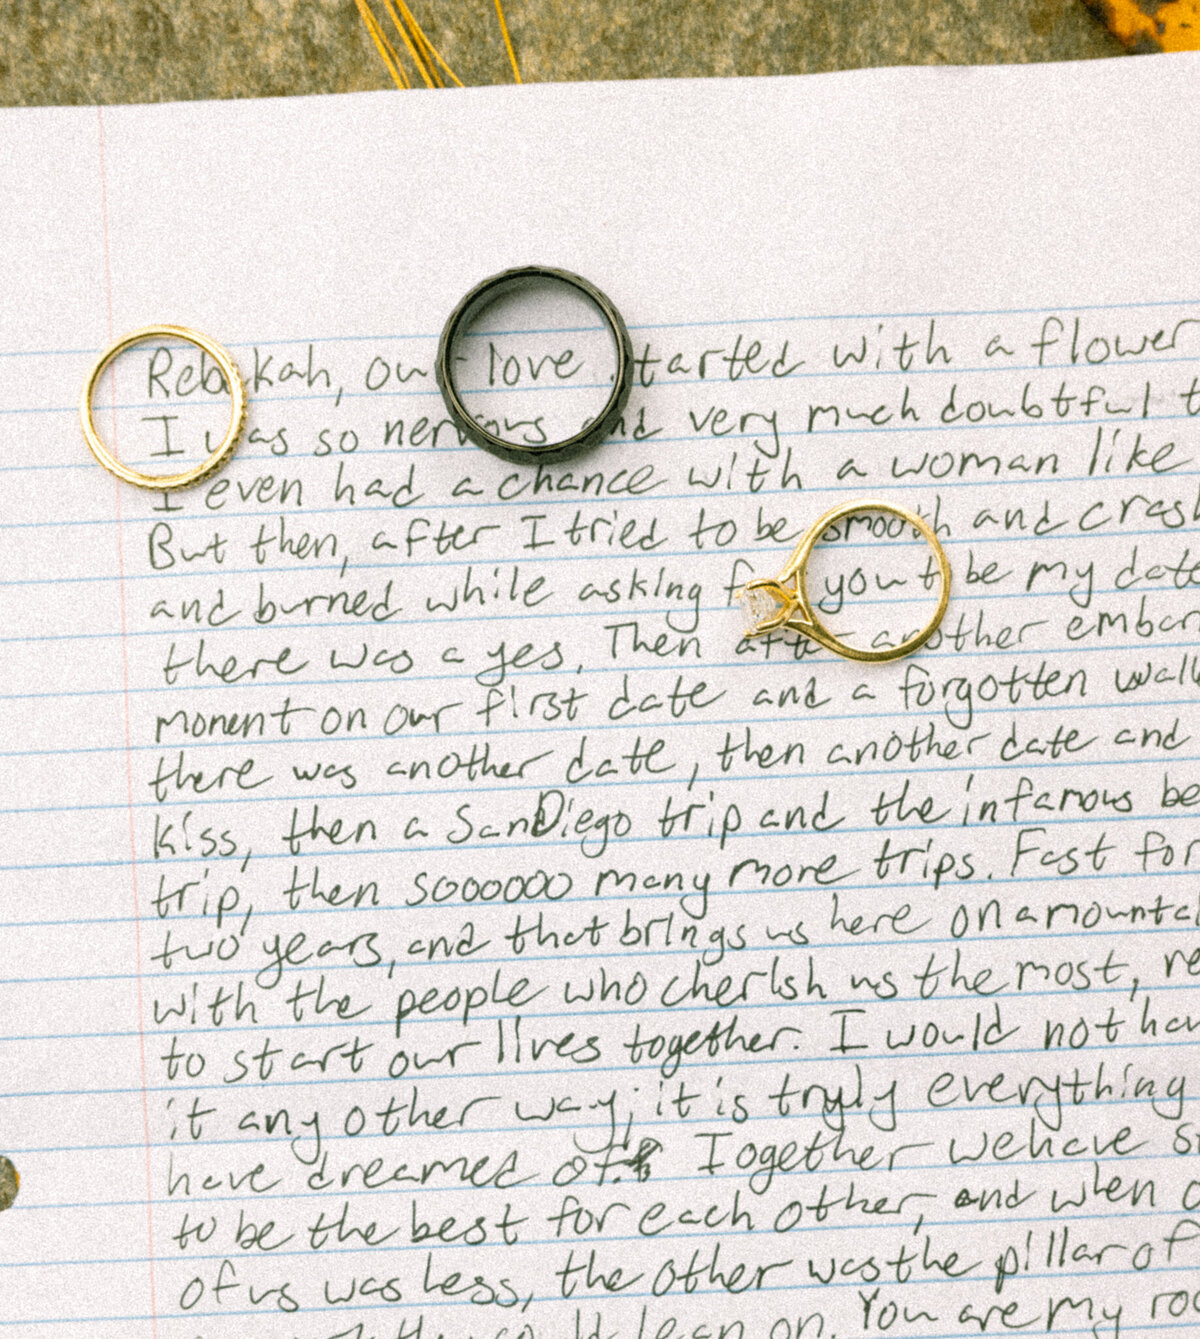 Rebekah, our love started with a flower
I was so nervous and very much doubtful t
I even had a chance with a woman like
But then, after I tried to be smooth and crash
and burned while asking for you to be my date
there was a yes. Then after another embar
monent on our first date and a forgotten wall
there was another date, then another date and
kiss, then a San Diego trip and the infamous be
trip, then soooooo many more trips. Fast for
two years, and that brings us here on a mounta
with the people who cherish us the most, re
to start our lives together. I would not hav
it any other way; it is tryly everything
have dreamed of. Together we have s
to be the best for each other, and when o
of us was less, the other was the pillar of
lean on. You are my roc